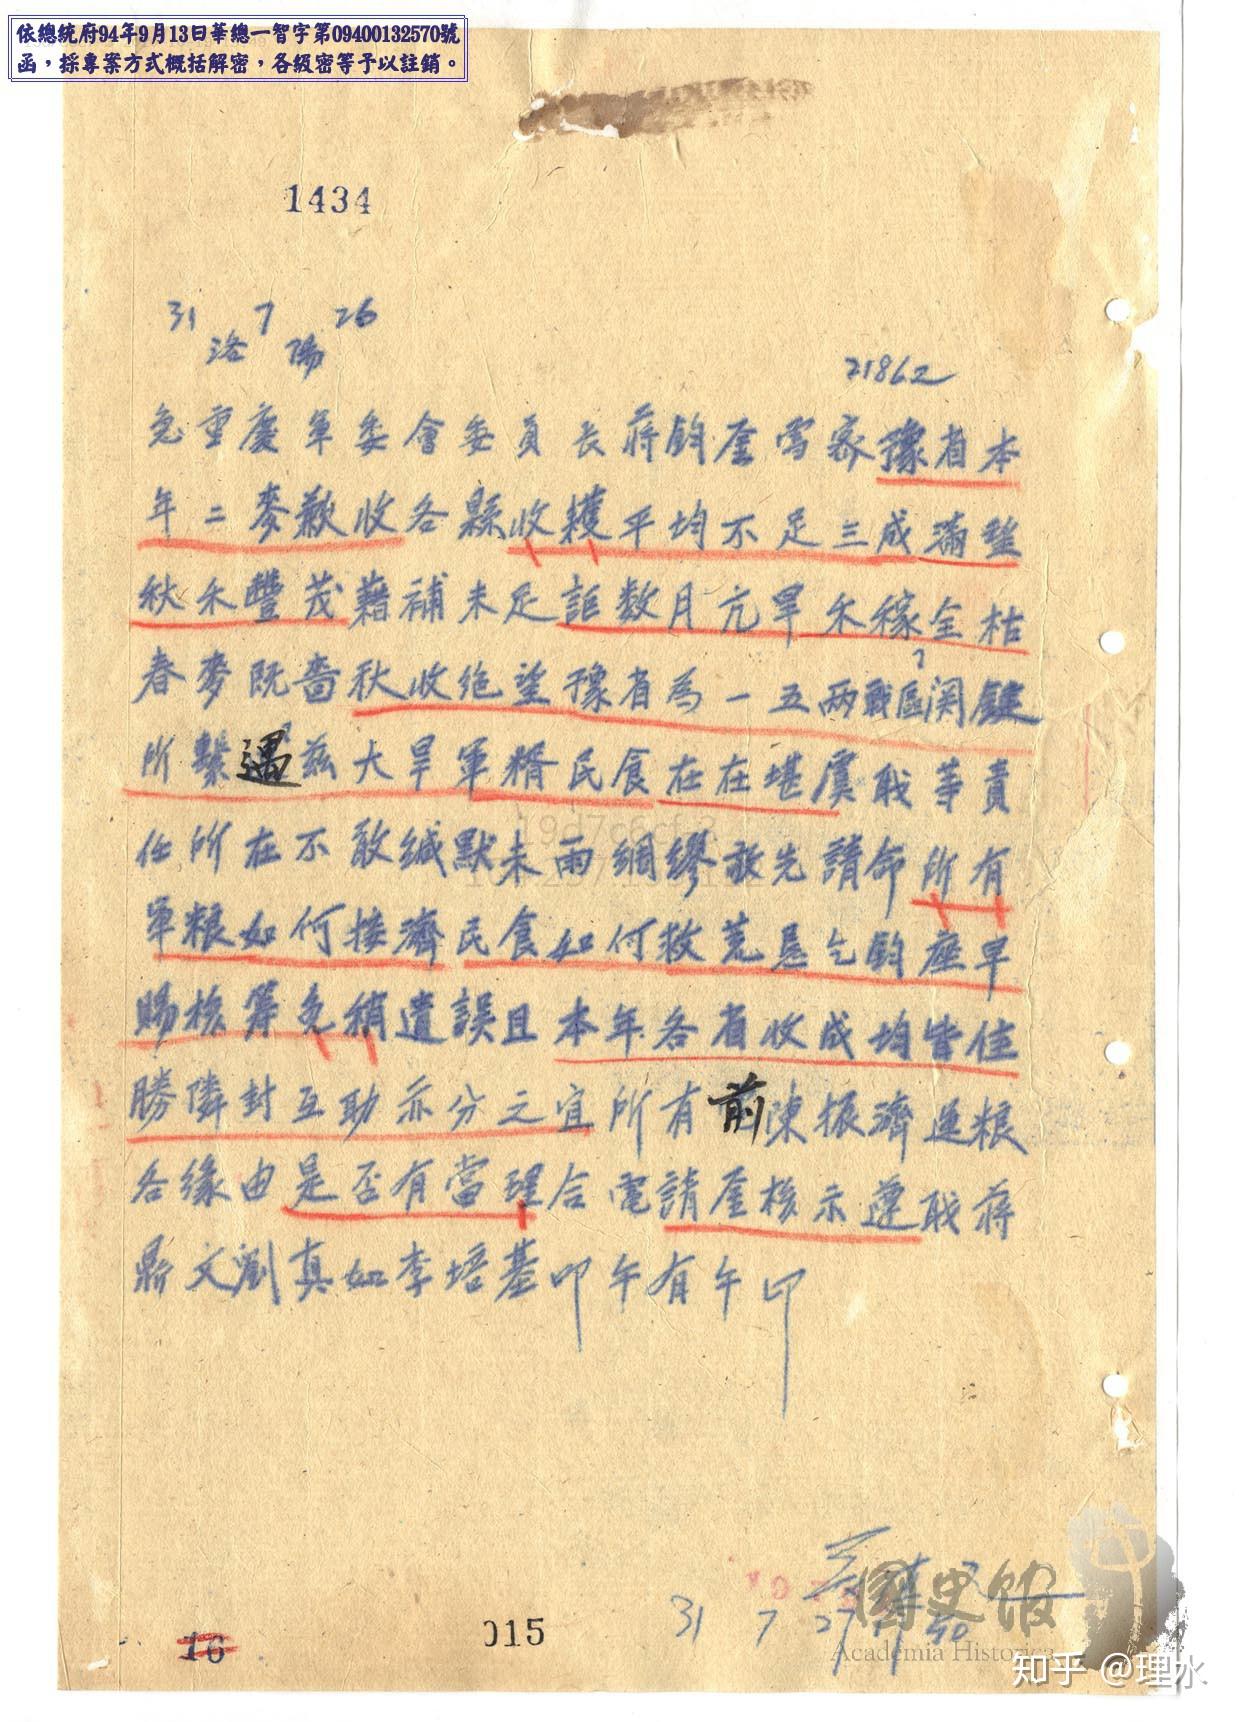 依總統府94年9月13日華總一智字第09400132570號
函，採專案方式概括解密，各級密等予以註銷。
1434
31 7 26
洛陽
21862
急重慶軍委會委員長蔣鈞座密豫省本
年二麥歉收各縣收穫平均不足三成滿望
秋禾豐茂藉補未足詎数月亢旱禾稼全枯
春麥既嗇秋收绝望豫省為一五两戰区関鍵
所繫遇茲大旱軍糈民食在在堪虞职等責
任所在不敢缄默未雨綢繆敢先請命所有
軍粮如何接濟民食如何救荒恳乞鈞座早
賜核筹免稍遺誤且本年各省收成均皆佳
勝隣封互助亦分之宜所有前陳振濟运粮
各缘由是否有當理合電請座核示遵职蔣
鼎文劉真如李培基叩午有午印
31 7 27
16
015
國史館
Academia Historica
知乎 @理水